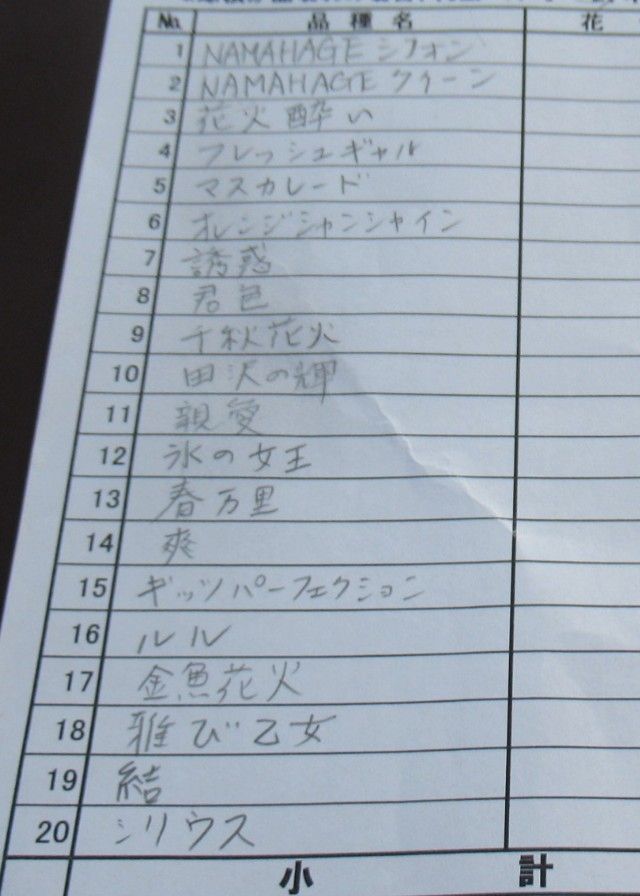 No. 品種名 花
1 NAMAHAGE シフォン
2 NAMAHAGE クイーン
3 花火酔い
4 フレッシュギャル
5 マスカレード
6 オレンジシャンシャイン
7 誘惑
8 君色
9 千秋花火
10 田沢の輝
11 親愛
12 氷の女王
13 春万里
14 爽
15 ギッツパーフェクション
16 ルル
17 金魚花火
18 雅び乙女
19 結
20 シリウス
小計